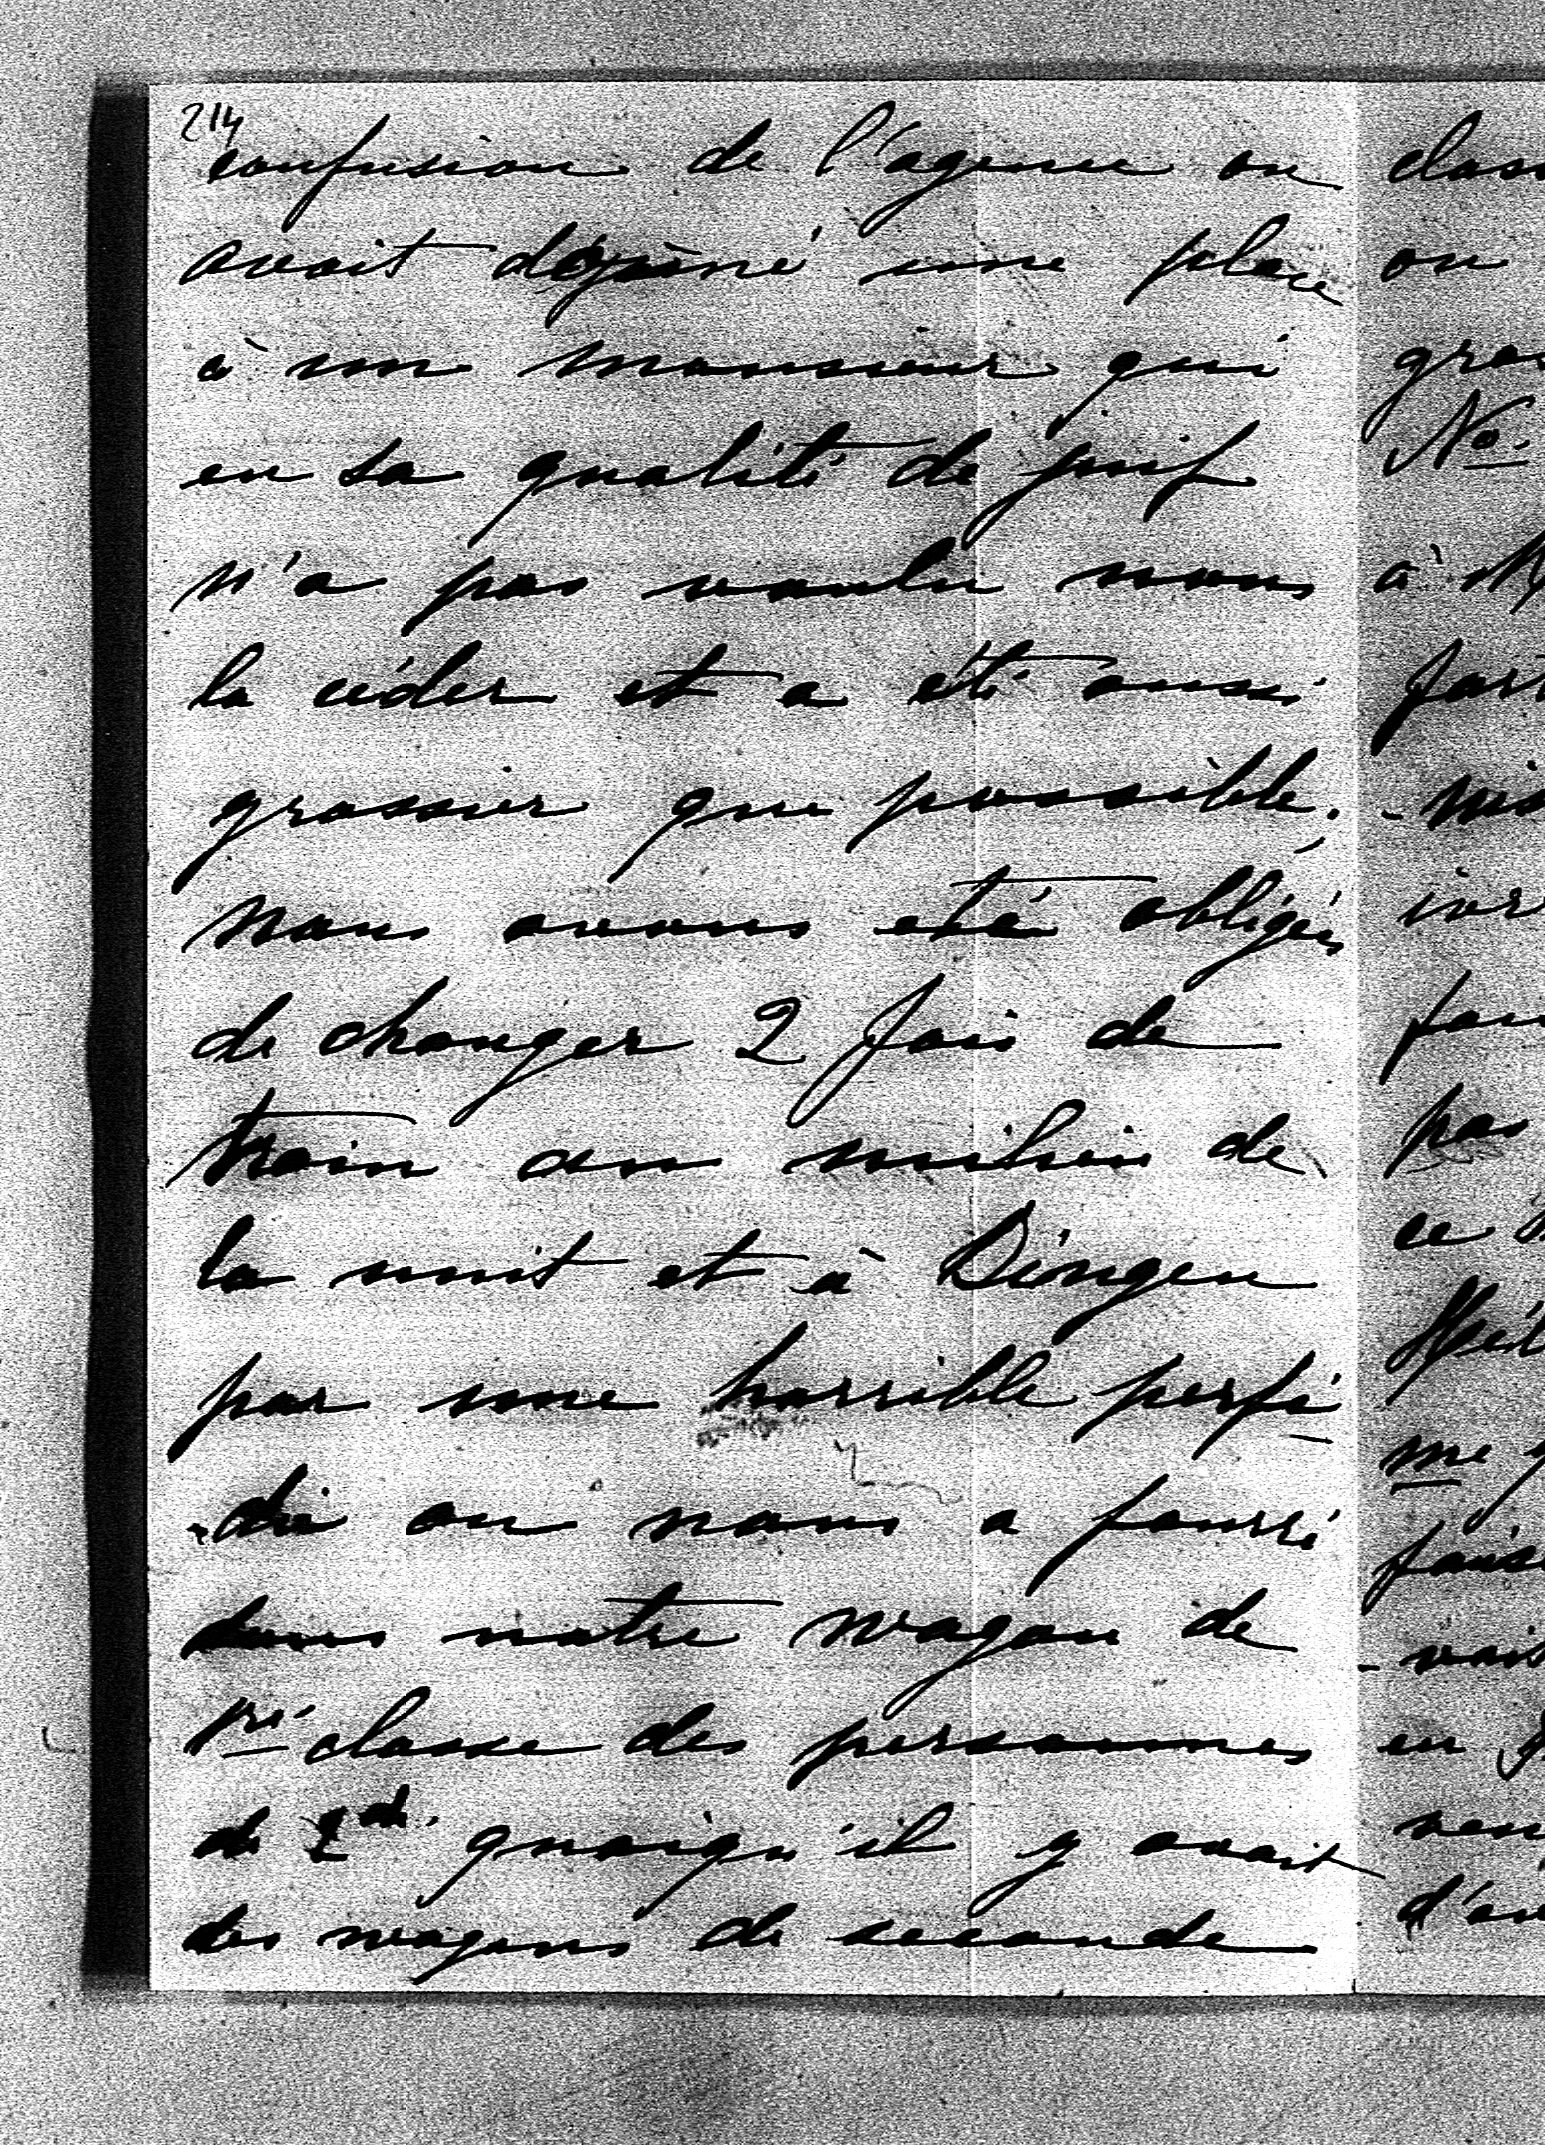 214
confusion de l'agence on
avait déjà donné une place
à un monsieur qui
en sa qualité de juif
n'a pas voulu nous
la céder et a été aussi
grossier que possible;
Nous avons été obligés
de changer 2 fois de
train au milieu de
la nuit et à Bingen
par une horrible perfi-
-die on nous a fourré
dans notre wagon de
1re classe des personnes
de 2de quoiqu'il y avait
des wagons de seconde
on
No.
à
pas
ce
me
en